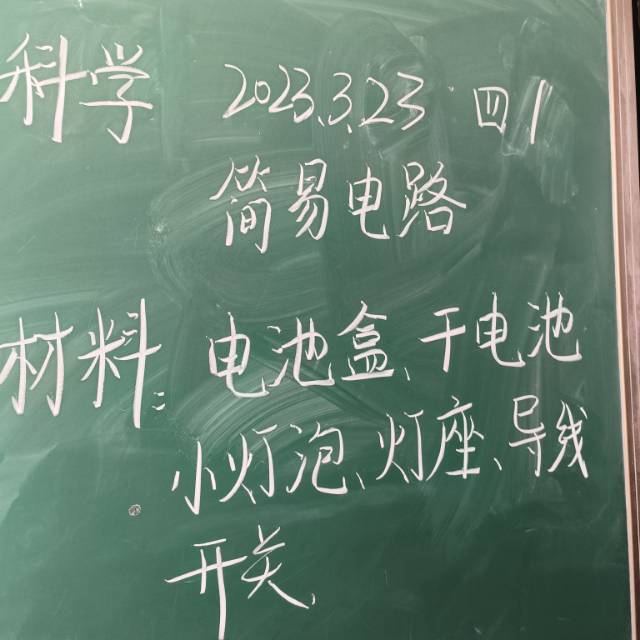 科学 2023.3.23 四1
简易电路
材料: 电池盒、干电池
小灯泡、灯座、导线
开关、